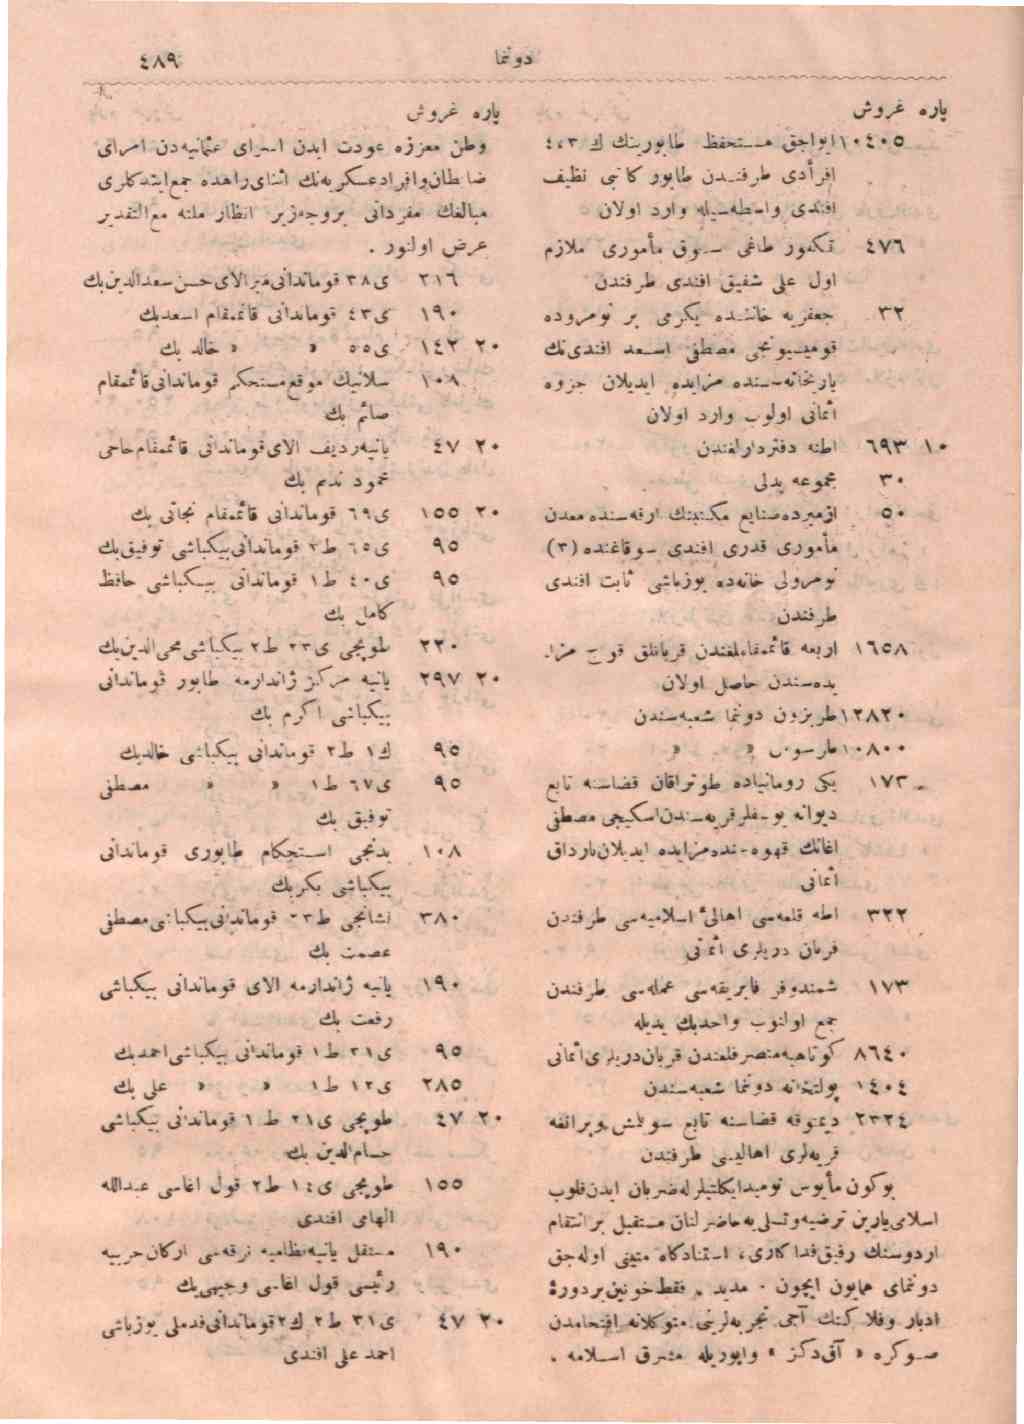 دوننما ٤٨٩
پاره غروش
١٠٤٠٥ ايواجق مستحفظ طابورينك ك ٤،٣
افرادى طرفندن طابور كاتبى نظيف
افندى واسطه‌سيله وارد اولان
٤٧٦ تكفور طاغى سوق مأمورى ملازم
اول على شفيق افندى طرفندن
٣٢ جعفريه خاننده يكرمى بر نومروده
قوميسيونجى مصطفى اسعد افندى‌نك
يازيخانه‌سنده مزايده ايديلان جزوه
اثمانى اولوب وارد اولان
١٠ ٦٩٣ اطنه دفتردارلغندن
٣٠ مجموعه بدلى
٥٠ ازميرده صنايع مكتبنك ارقه‌سنده معدن
مأمورى قدرى افندى سوقاغنده (٣)
نومرولى خانه‌ده يوزباشى ثابت افندى
طرفندن
١٦٥٨ اربعه قائممقاملغندن قربانلق قوج مزا
يده‌سندن حاصل اولان
١٢٨٢٠ طربزون دوننما شعبه‌سندن
١٠٨٠٠ طرسوس » »
١٧٣ يكى رومانياده طوتراقان قضاسنه تابع
ديوانه يوسفلر قريه‌سندن اسكيجى مصطفى
اغانك قهوه‌سنده مزايده ايديلان بارداق
اثمانى
٣٢٢ اطه قلعه‌سى اهالئ اسلاميه‌سى طرفندن
قربان دريلرى اثمانى
١٧٣ شمندوفر فابريقه‌سى عمله‌سى طرفندن
جمع اولنوب واحدبك يديله
٨٦٤٠ كوتاهيه متصرفلغندن قربان دريلرى اثمانى
١٤٠٤ پولتخانه دوننما شعبه‌سندن
٢٣٢٤ ديمتوقه قضاسنه تابع سو
قريه‌لرى اهاليسى طرفندن
بوكون مأيوس نوميدايكلتيلرله ضربان ايدن قلوب
اسلامى يارين ترضيه وتسلى‌يه حاضرلنان مستقبل بر انتقام
اردوسنك رفيق فداكارى، استنادكاه متينى اوله‌جق
دوننماى همايون ايچون مديد ، فقط خونين بر دورۀ
ادبار وفلاكتك آجى تجربه‌لرينى متوكلانه اقتحامدن
صوكره « آق‌دكز » واپوريله مشرق اسلامه .
پاره غروش
وطن معززه عودت ايدن اسراى عثمانيه‌دن امراى
ضابطان وافراد عسكريه‌نك اثناى راهده جمع ايتدكلرى
مبالغك مفرداتى بروجه‌زير انظار ملته مع‌التقدير
عرض اولنور .
٢١٦ ى٣٨ قوماندانى ميرالاى حسن سعدالدين‌بك
١٩٠ ى٤٣ قوماندانى قائممقام اسعدبك
٢٠ ١٤٢ ى٥٥ » » خالد بك
١٠٨ سلانيك موقع مستحكم قوماندانى قائممقام
صائم بك
٢٠ ٤٧ يانيه رديف الاى قوماندانى قائممقام حاجى
محمود نديم بك
٢٠ ١٥٥ ى٦٩ قوماندانى قائممقام نجاتى بك
٩٥ ى٦٥ ط٣ قوماندانى بيكباشى توفيق‌بك
٩٥ ى٤٠ ط١ قوماندانى بيكباشى حافظ
كامل بك
٢٢٠ طوپجى ى٢٣ ط٢ بيكباشى محى‌الدين‌بك
٢٠ ٢٩٧ يانيه مركز ژاندارمه طابور قوماندانى
بيكباشى اكرم بك
٩٥ ك١ ط٢ قوماندانى بيكباشى خالدبك
٩٥ ى٦٧ ط١ » » مصطفى
توفيق بك
١٠٨ يدنجى استحكام طابورى قوماندانى
بيكباشى بكربك
٣٨٠ نشانجى ط٢٣ قوماندانى بيكباشى مصطفى
عصمت بك
١٩٠ يانيه ژاندارمه الاى قوماندانى بيكباشى
رفعت بك
٩٥ ى٢١ ط١ قوماندانى بيكباشى احمدبك
٢٨٥ ى١٢ ط١ » » على بك
٢٠ ٤٧ طوپجى ى٢١ ط ١ قوماندانى بيكباشى
حسام‌الدين بك
١٥٥ طوپجى ى١٤ ط٢ قول اغاسى عبدالله
الهامى افندى
١٩٠ مستقل يانيه نظاميه فرقه‌سى اركان حربيه
رئيسى قول اغاسى وجيهى‌بك
٢٠ ٤٧ ى٣١ ط٢ ك٢ قوماندانى قدملى يوزباشى
احمد على افندى